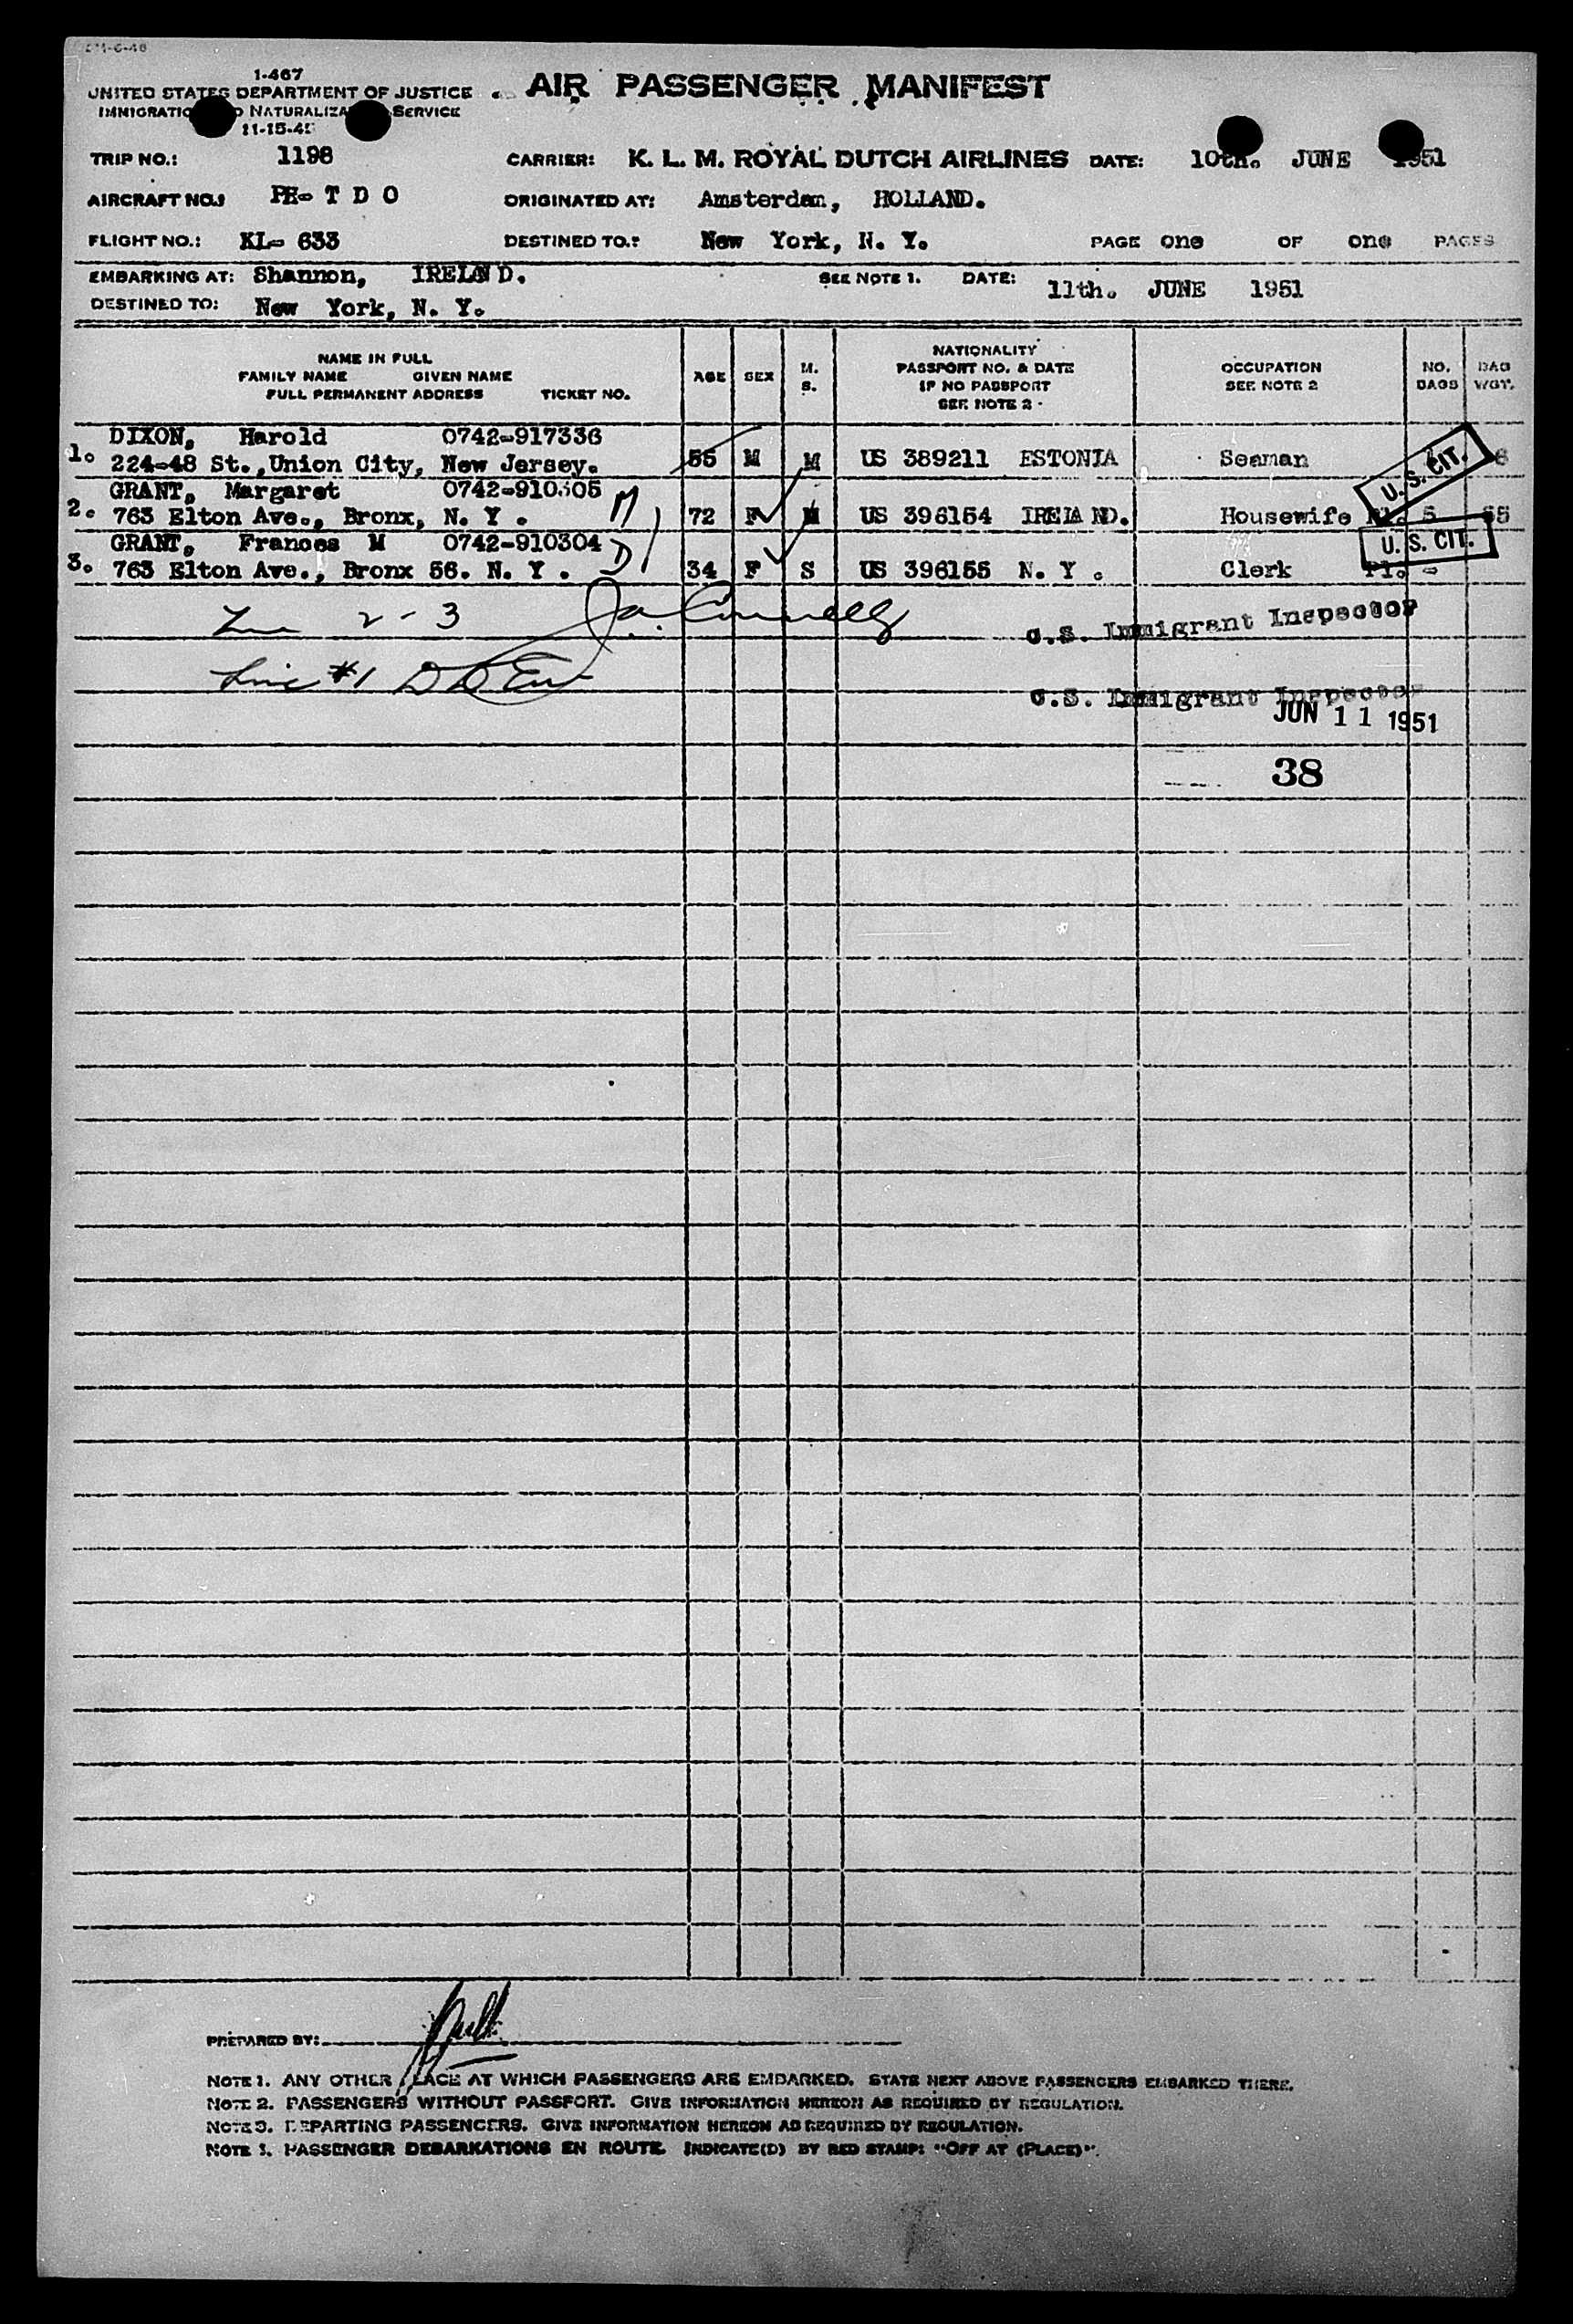 1-467
UNITED STATES DEPARTMENT OF JUSTICE
AIR PASSENGER MANIFEST
IMMIGRATIO NATURALIZA SERVICE
11-15-4
TRIP NO.: 1198 CARRIER: K. L. M. ROYAL DUTCH AIRLINES DATE: 10th. JUNE 1951
AIRCRAFT NO.: PH- T D O ORIGINATED AT: Amsterdam, HOLLAND.
FLIGHT NO.: KL- 633 DESTINED TO.: New York, N. Y. PAGE one OF one PAGES
EMBARKING AT: Shannon, IRELAND. SEE NOTE 1. DATE: 11th. JUNE 1951
DESTINED TO: New York, N. Y.
NAME IN FULL
FAMILY NAME GIVEN NAME
FULL PERMANENT ADDRESS TICKET NO.
AGE SEX M. S.
NATIONALITY
PASSPORT NO. & DATE
IF NO PASSPORT
SEE NOTE 2
OCCUPATION
SEE NOTE 2
NO. BAGS
BAG WGT.
DIXON, Harold 0742-917336
1. 224-48 St., Union City, New Jersey. 55 M M US 389211 ESTONIA Seaman
U. S. CIT.
GRANT, Margaret 0742-910305 M
2. 763 Elton Ave., Bronx, N. Y . 72 F M US 396154 IRELAND. Housewife Pl. 5 55
GRANT, Frances M 0742-910304 D
U. S. CIT.
3. 763 Elton Ave., Bronx 56. N. Y . 34 F S US 396155 N. Y . Clerk Pl. -
2 - 3 U.S. Immigrant Inspector
Line #1
U.S. Immigrant Inspector
JUN 11 1951
38
PREPARED BY:
NOTE 1. ANY OTHER PLACE AT WHICH PASSENGERS ARE EMBARKED. STATE NEXT ABOVE PASSENGERS EMBARKED THERE.
NOTE 2. PASSENGERS WITHOUT PASSPORT. GIVE INFORMATION HEREON AS REQUIRED BY REGULATION.
NOTE 3. DEPARTING PASSENGERS. GIVE INFORMATION HEREON AS REQUIRED BY REGULATION.
NOTE PASSENGER DEBARKATIONS EN ROUTE. INDICATE(D) BY RED STAMP: "OFF AT (PLACE)".